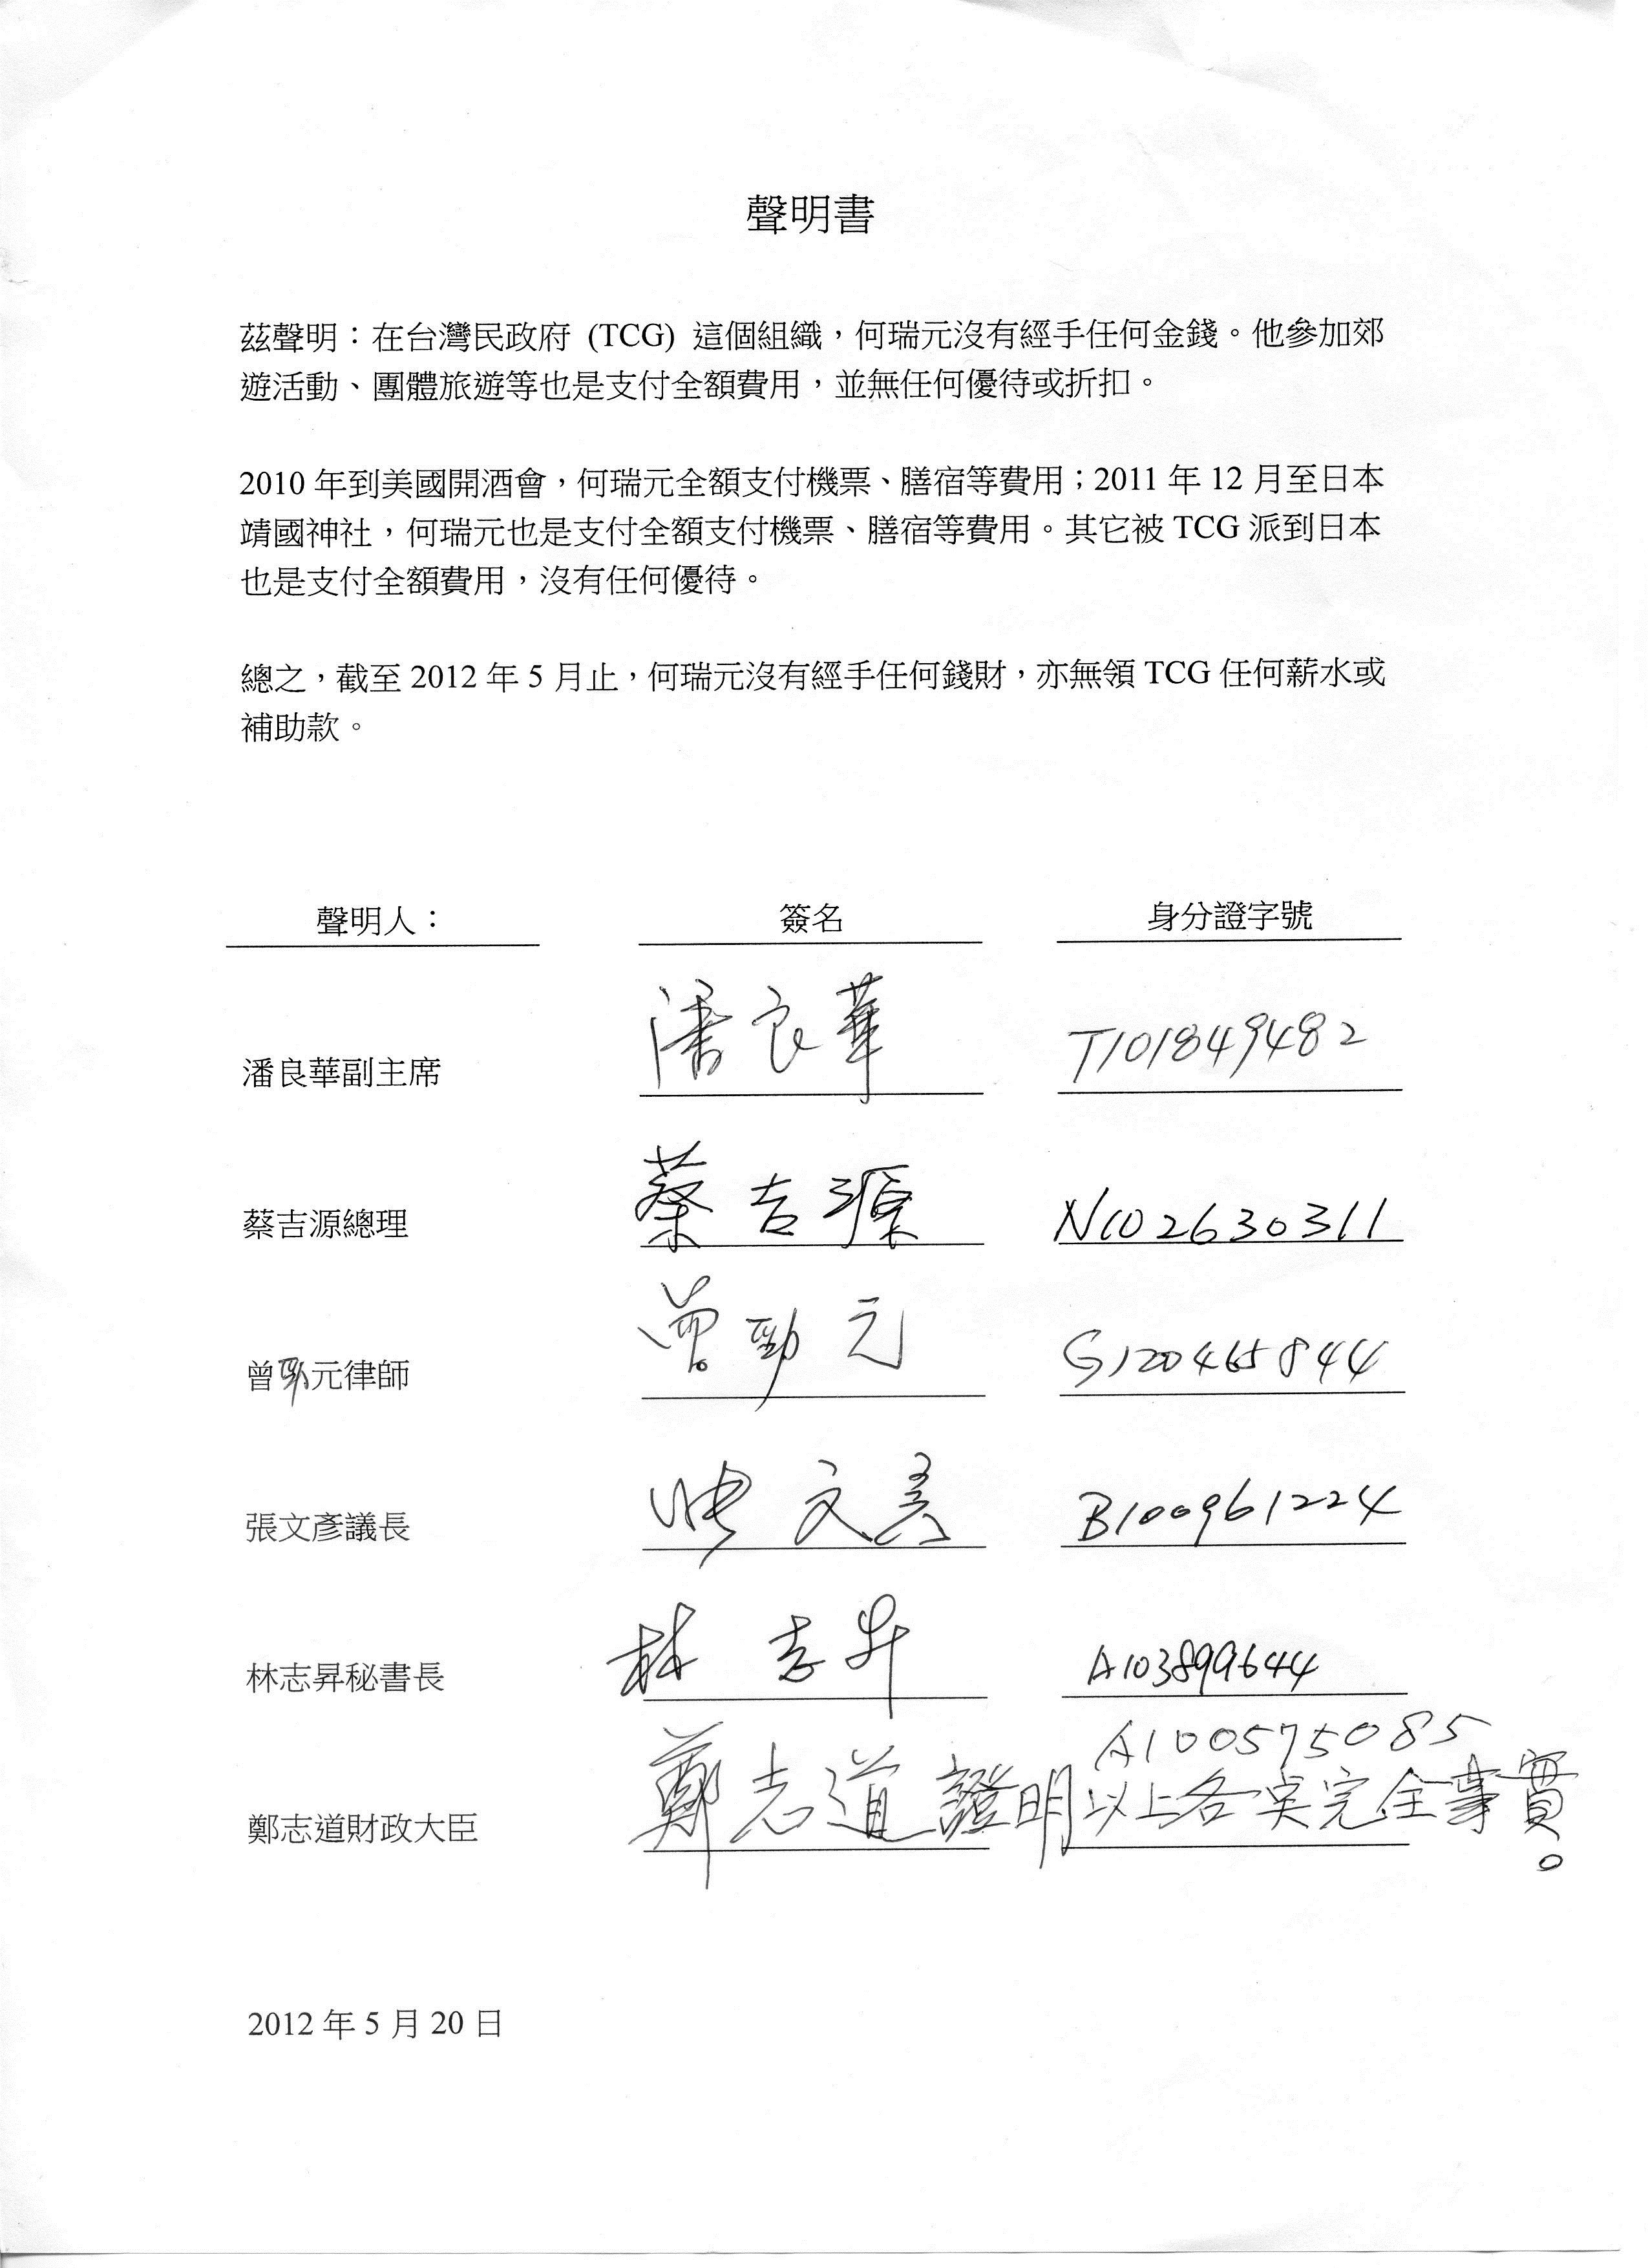 聲明書
茲聲明：在台灣民政府 (TCG) 這個組織，何瑞元沒有經手任何金錢。他參加郊
遊活動、團體旅遊等也是支付全額費用，並無任何優待或折扣。
2010 年到美國開酒會，何瑞元全額支付機票、膳宿等費用；2011 年 12 月至日本
靖國神社，何瑞元也是支付全額支付機票、膳宿等費用。其它被 TCG 派到日本
也是支付全額費用，沒有任何優待。
總之，截至 2012 年 5 月止，何瑞元沒有經手任何錢財，亦無領 TCG 任何薪水或
補助款。
聲明人： 簽名 身分證字號
潘良華副主席 潘良華 T101849482
蔡吉源總理 蔡吉源 N102630311
曾勁元律師 曾勁元 G120465844
張文彥議長 張文彥 B100961224
林志昇秘書長 林志昇 A103899644
A100575085
鄭志道財政大臣 鄭志道 證明以上各案完全事實。
2012 年 5 月 20 日